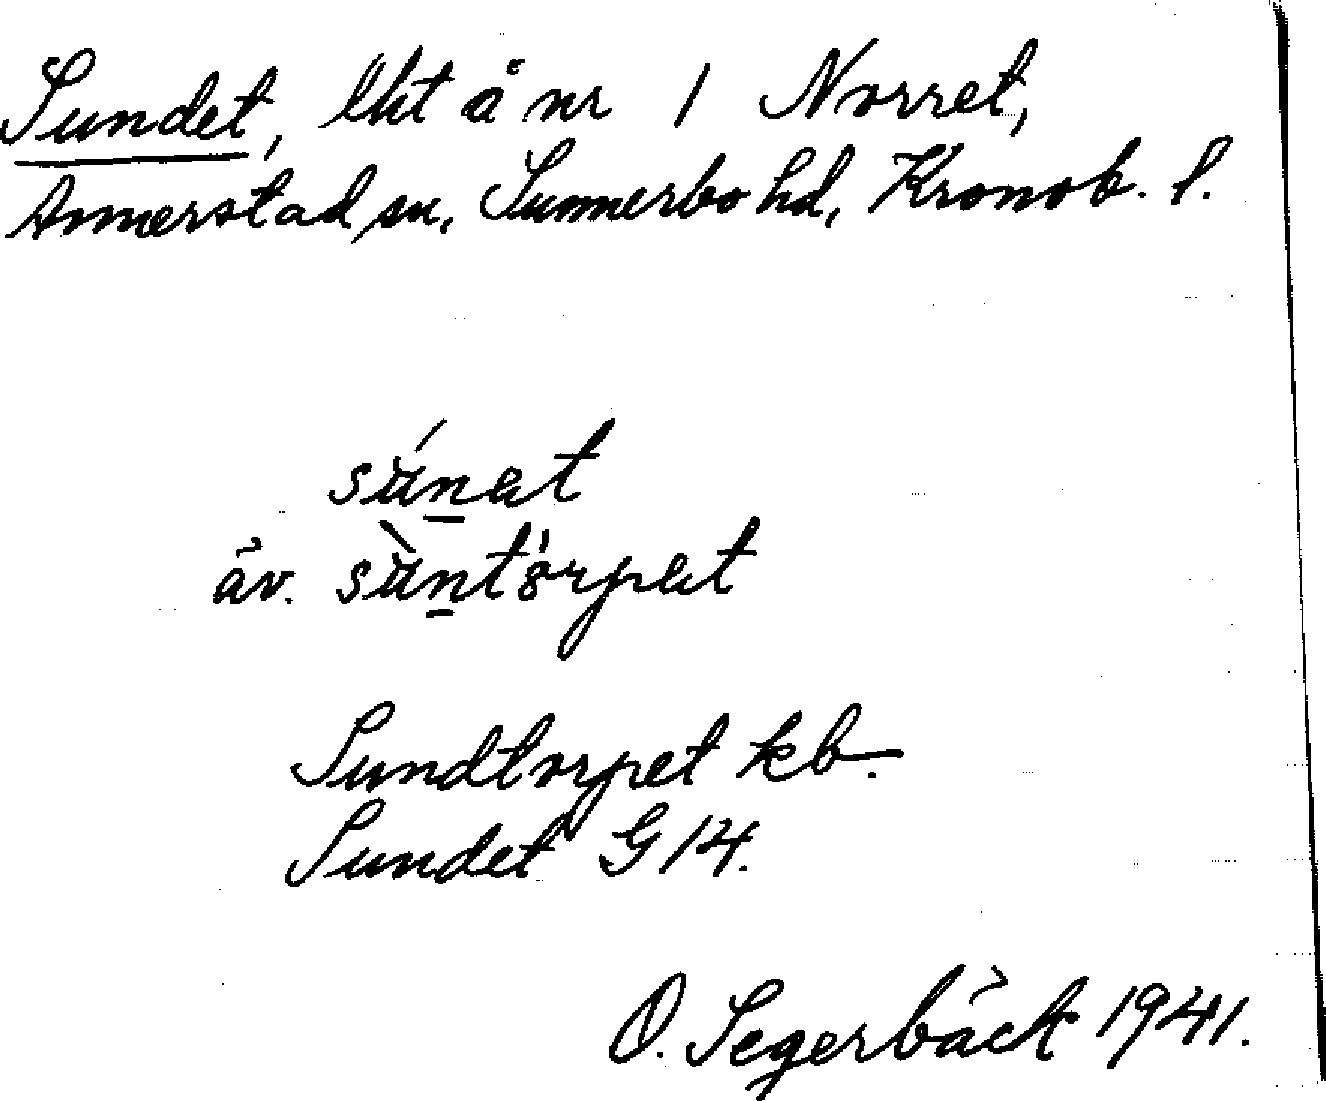 Sundet, lht å nr 1 Norret,
Annerstad sn, Sunnerbo hd, Kronob. l.
súnet
äv. sùntórpet
Sundtorpet kb.
Sundet G 14.
O. Segerbäck 1941.